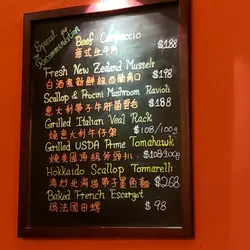 Special Recommendation
Beef Carpaccio
意式生牛肉 $188
Fresh New Zealand Mussels
白酒煮新鮮紐西蘭青口 $198
Scallop & Procini Mushroom Ravioli
意大利帶子牛肝菌雲吞 $188
Grilled Italian Veal Rack
燒意大利牛仔架 $108/100g
Grilled USDA Prime Tomahawk
燒美國頂級斧頭扒 $108/100g
Hokkaido Scallop Tonnarelli
北海道帶子墨魚麵 $268
Baked French Escargot
焗法國田螺 $98